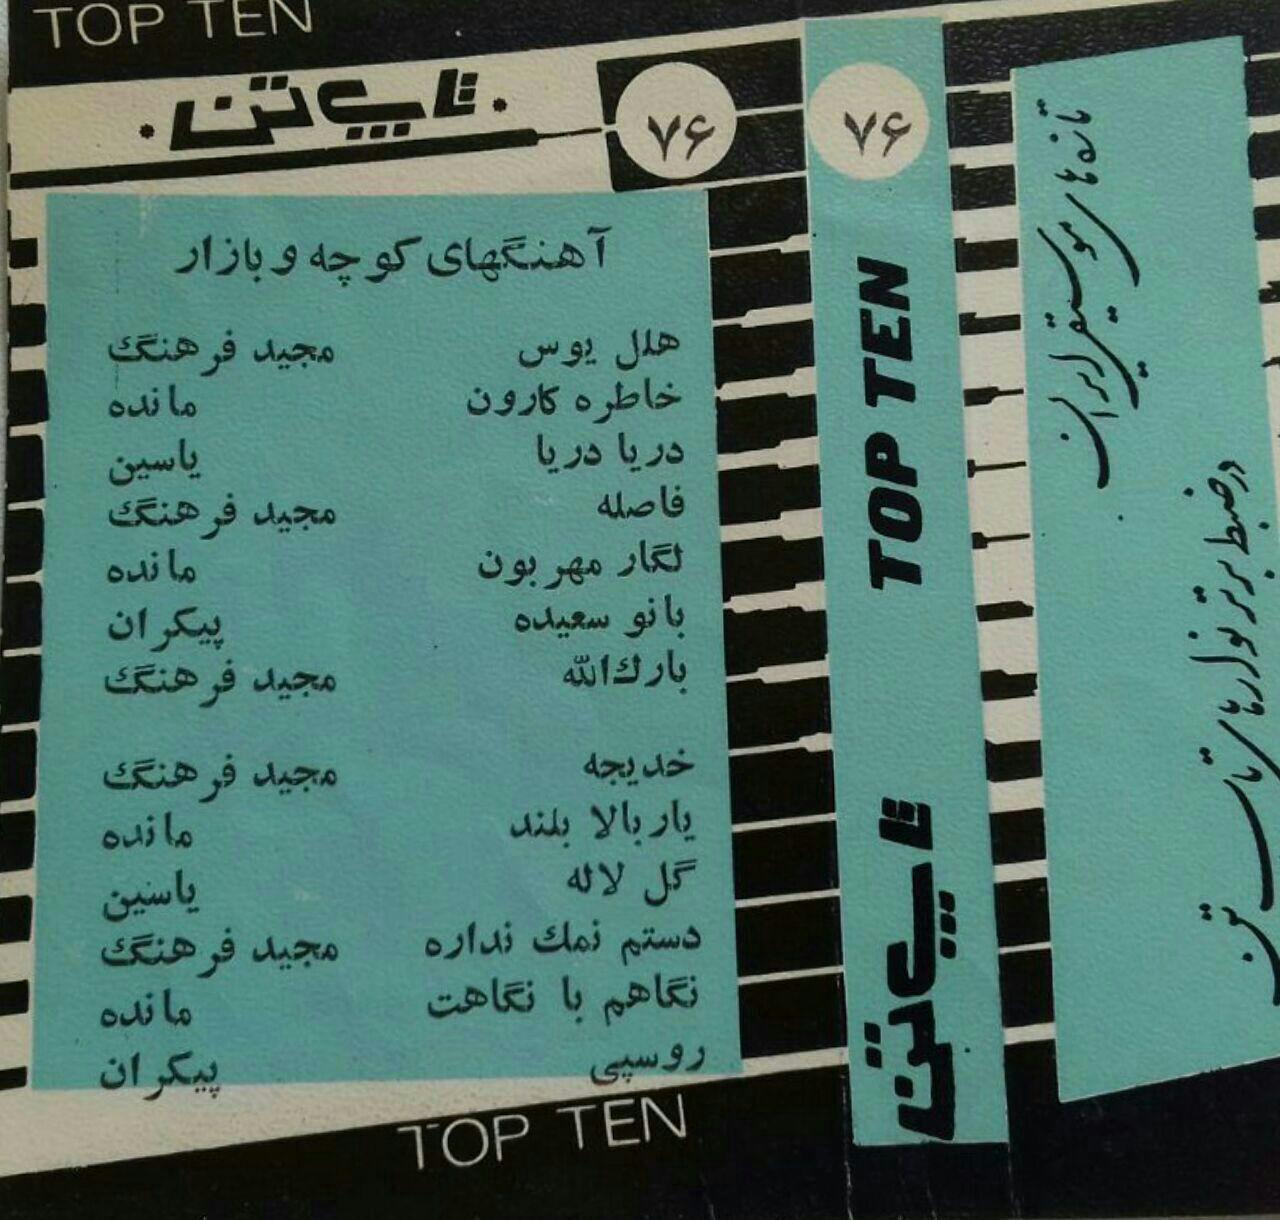 TOP TEN
تاپ تن
۷۶
آهنگهای کوچه و بازار
هلل یوس مجید فرهنگ
خاطره کارون مانده
دریا دریا یاسین
فاصله مجید فرهنگ
لگار مهربون مانده
بانو سعیده پیکران
بارك‌الله مجید فرهنگ
خدیجه مجید فرهنگ
یار بالا بلند مانده
گل لاله یاسین
دستم نمك نداره مجید فرهنگ
نگاهم با نگاهت مانده
روسپی پیکران
TOP TEN
۷۶
TOP TEN
تاپ تن
تازه های موسیقی ایران
در ضبط برتر نوارهای تاپ تن